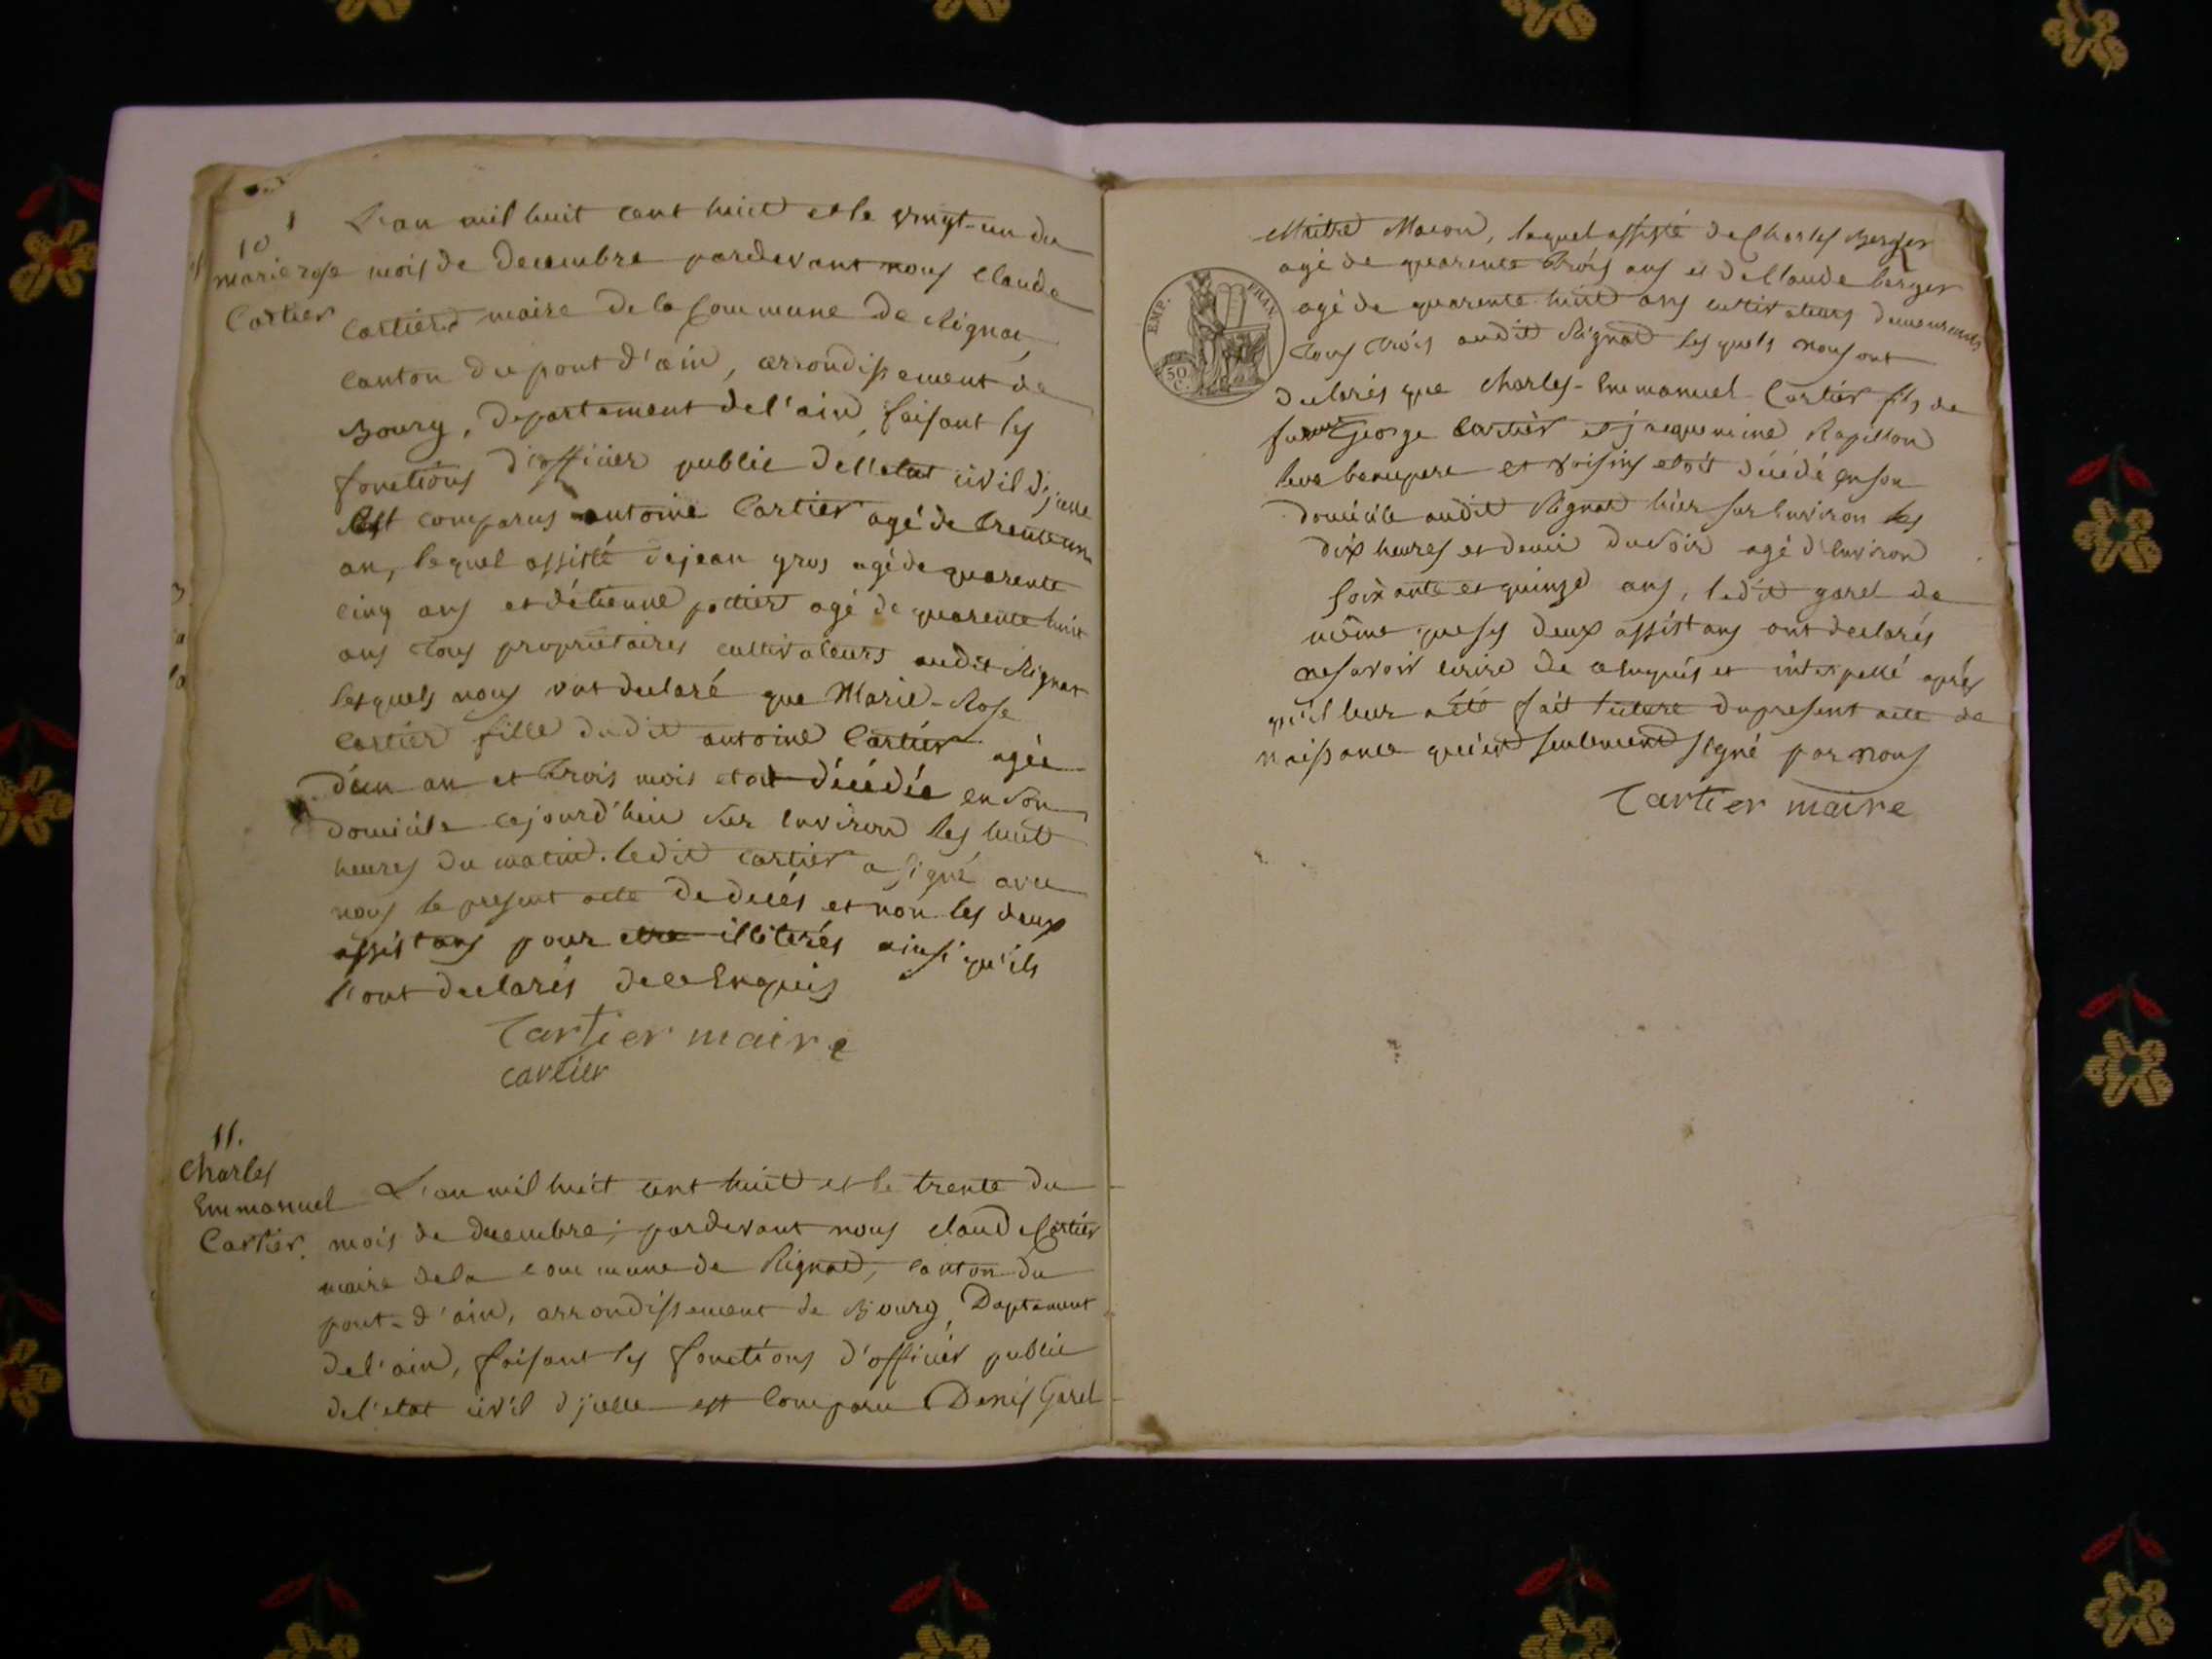 10
marie rose
Cartier
L'an mil huit cent huit et le vingt-un du
mois de decembre pardevant nous Claude
Cartier maire de la Commune de Rignat
Canton du pont d'ain, arrondissement de
Bourg, departement de l'ain, faisant les
fonctions d'officier public de l'etat civil d'icelle
est comparus antoine Cartier agé de trente un
an, lequel assisté de jean gros agé de quarente
cinq ans et d'étienne pottier agé de quarente huit
ans tous proprietaires cultivateurs audit Rignat
lesquels nous ont declaré que Marie-Rose
Cartier fille dudit antoine Cartier agée
d'un an et trois mois etoit décédée en son
domicile cejourd'hui sur environ les huit
heures du matin. ledit cartier a signé avec
nous le present acte de decés et non les deux
assistans pour etre illiterés ainsi qu'ils
l'ont declarés de ce Enquis
Cartier maire
cartier
11.
Charles
Emmanuel
Cartier.
L'an mil huit cent huit et le trente du
mois de decembre; pardevant nous claude Cartier
maire de la commune de Rignat, canton du
pont-d'ain, arrondissement de Bourg, Daptement
de l'ain, faisant les fonctions d'officier public
de l'etat civil d'jcelle est Comparu Denis Garel
Maitre Macon, lequel assisté de Charles Berger
agé de quarente trois ans et de Claude berger
agé de quarente huit ans cultivateurs demeurants
tous trois audit Rignat lesquels nous ont
declarés que Charles-Emmanuel Cartier fils de
George Cartier et jacquemine Rapillon
leur beaupere et voisins etoit décédé en son
domicile audit Rignat hier sur Environ les
dix heures et demie du soir agé d'Environ
soixante et quinze ans, ledit garel de
même que ses deux assistans ont declarés
ne savoir ecrire de ce enquis et interpellé après
qu'il leur a été fait lecture du present acte de
naissance qui est seulement signé par nous
Cartier maire
EMP. FRAN.
50 C.